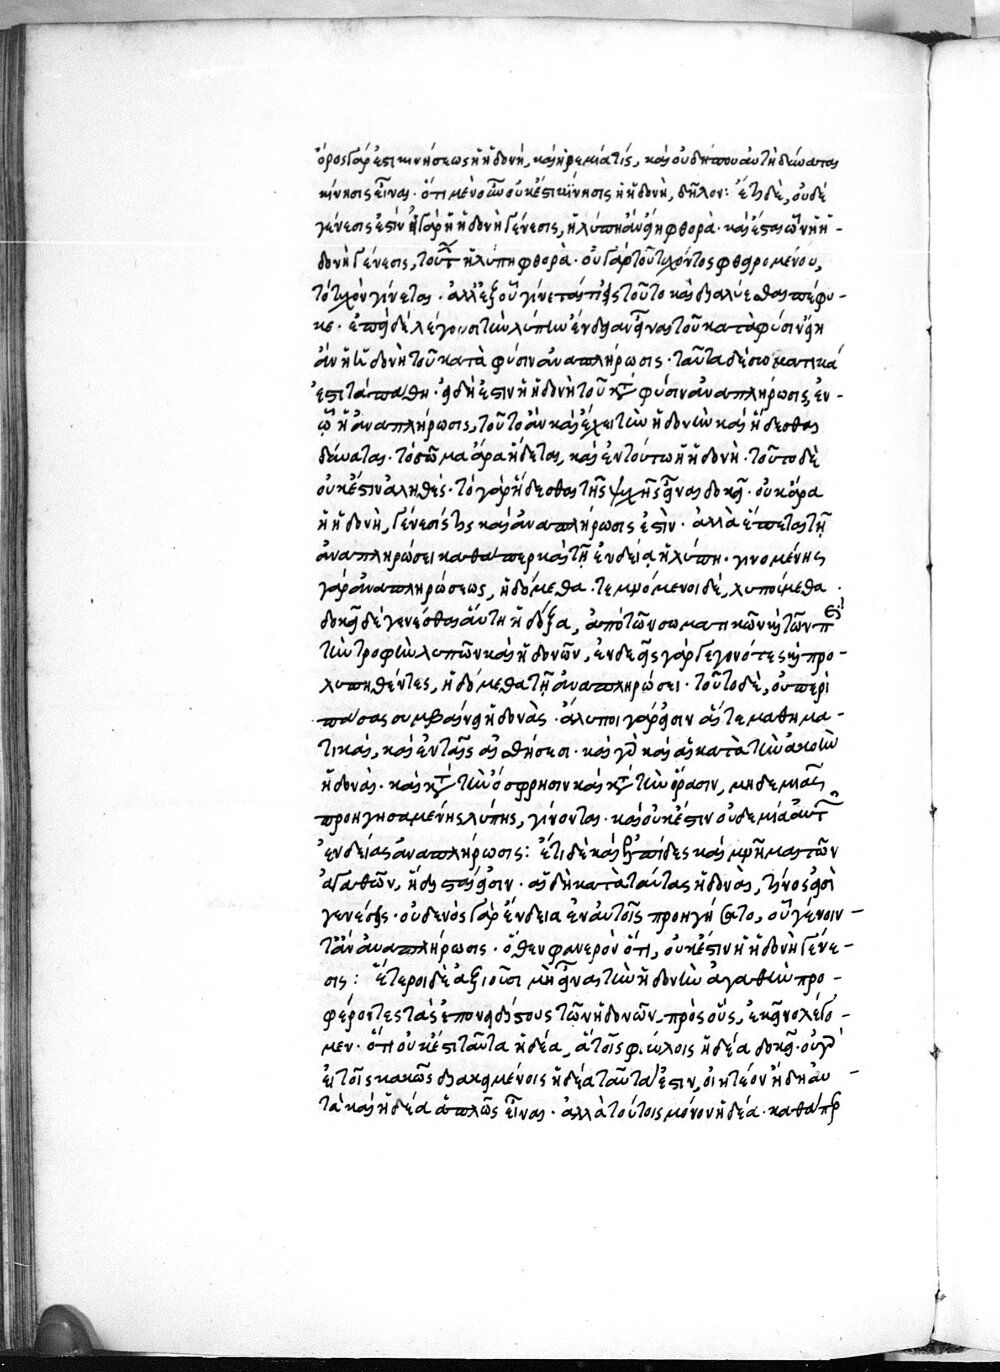 ὅρος γάρ ἐστι κινήσεως ἡ ἡδονὴ, καὶ ἠρεμία τίς, καὶ οὐδήπου αὐτὴ δύναται
κίνησις εἶναι· ὅτι μὲν οὖν οὐκ ἔστι κίνησις ἡ ἡδονὴ, δῆλον: ἔτι δὲ, οὐδὲ
γένεσις ἐστίν εἰ γὰρ ἡ ἡδονὴ γένεσις, ἡ λύπη ἂν εἴη φθορὰ· καὶ ἔσται ὧν ἡ ἡ-
δονὴ γένεσις, τούτων ἡ λύπη φθορὰ· οὐ γὰρ τοῦ τυχόντος φθειρομένου,
τὸ τυχὸν γίνεται· ἀλλ' ἐξ οὗ γίνεται τί εἰς τοῦτο καὶ διαλύεσθαι πέφυ-
κε· ἐπεὶ δὲ λέγουσι τὴν λύπην ἔνδειαν εἶναι τοῦ κατὰ φύσιν εἴη
ἂν ἡ ἡδονὴ τοῦ κατὰ φύσιν ἀναπλήρωσις· ταῦτα δὲ σωματικά
ἐστι τὰ πάθη· εἰ δή ἐστιν ἡ ἡδονὴ τοῦ κατὰ φύσιν ἀναπλήρωσις, ἐν
ᾧ ἡ ἀναπλήρωσις, τοῦτο ἂν καὶ ἔχει τὴν ἡδονὴν καὶ ἥδεσθαι
δύναται· τὸ σῶμα ἄρα ἥδεται, καὶ ἐν τούτω ἡ ἡδονὴ· τοῦτο δὲ
οὐκ ἔστιν ἀληθές· τὸ γὰρ ἥδεσθαι τῆς ψυχῆς εἶναι δοκεῖ· οὐκ ἄρα
ἡ ἡδονὴ, γένεσίς τις καὶ ἀναπλήρωσις ἐστὶν· ἀλλὰ ἕπεται τῇ
ἀναπληρώσει καθάπερ καὶ τῇ ἐνδείᾳ ἡ λύπη· γινομένης
γὰρ ἀναπληρώσεως, ἡδόμεθα· τεμνόμενοι δὲ, λυπούμεθα·
δοκεῖ δὲ γενέσθαι αὕτη ἡ δόξα, ἀπὸ τῶν σωματικῶν καὶ τῶν περὶ
τὴν τροφὴν λυπῶν καὶ ἡδονῶν, ἐνδεεῖς γὰρ γεγονότες καὶ προ-
λυπηθέντες, ἡδόμεθα τῇ ἀναπληρώσει· τοῦτο δὲ, οὐ περὶ
πάσας συμβαίνει ἡδονὰς· ἄλυποι γάρ εἰσιν αἵ τε μαθημα-
τικαὶ, καὶ ἐν ταῖς αἰσθήσεσι· καὶ γὰρ καὶ αἱ κατὰ τὴν ἀκοὴν
ἡδοναὶ· καὶ κατὰ τὴν ὄσφρησιν καὶ κατὰ τὴν ὅρασιν, μηδεμιᾶς
προηγησαμένης λύπης, γίνονται· καὶ οὐκ ἔστιν οὐδεμία αὐτῶν
ἐνδείας ἀναπλήρωσις: ἔτι δὲ καὶ ἐλπίδες καὶ μνῆμαι τῶν
ἀγαθῶν, ἡδεῖσταί εἰσιν· αἱ δὴ κατὰ ταύτας ἡδοναὶ, τίνος εἰσὶ
γενέσεις· οὐδενὸς γὰρ ἔνδεια ἐν αὐτοῖς προηγήσατο, οὗ γένοιτ
τ' ἂν ἀναπλήρωσις· ὅθεν φανερὸν ὅτι, οὐκ ἔστιν ἡ ἡδονὴ γένε-
σις: ἕτεροι δὲ ἀξιοῦσι μὴ εἶναι τὴν ἡδονὴν ἀγαθὴν προ-
φέροντες τὰς ἐπονειδίστους τῶν ἡδονῶν, πρὸς οὓς, ἐκεῖνο λέγο-
μεν· ὅτι οὐκ ἔστι ταῦτα ἡδέα, ἃ τοῖς φαύλοις ἡδέα δοκεῖ· οὐ γὰρ
εἰ τοῖς κακῶς διακειμένοις ἡδέα ταῦτα ἐστιν, οἰητέον ἤδη αὐ-
τὰ καὶ ἡδέα ἁπλῶς εἶναι· ἀλλὰ τούτοις μόνον ἡδέα· καθάπερ